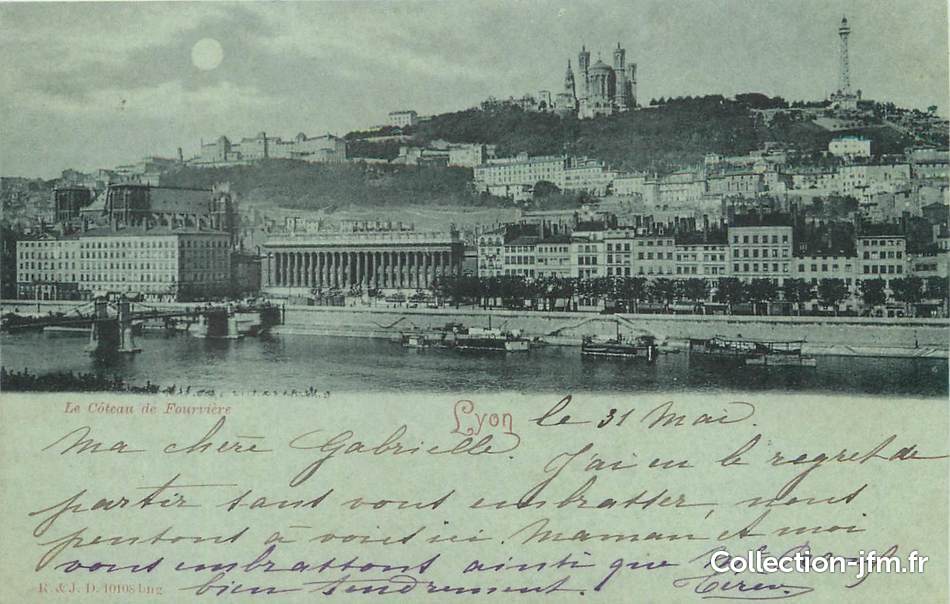 Le Côteau de Fourvière
Lyon le 31 Mai.
Ma chère Gabrielle. J'ai eu le regret de
partir sans vous embrasser, nous
pensons à vous ici. Maman et moi
vous embrassons ainsi que
Collection-jfm.fr
R. & J. D. 10108 bng
bien tendrement.